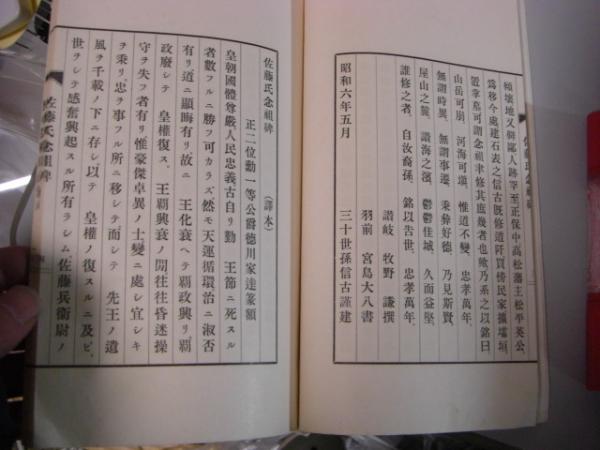 傾壊地又與鄰人跡罕至正保中高松藩主松平英公
爲移今處建石表之信古既修道阡買傍民家擴壖垣
置掌墓可謂念祖聿修其庶幾者也歟乃系之以銘曰
山岳可崩、河海可堙、惟道不變、忠孝萬年、
無謂時異、無謂事遷、秉彝好德、乃見斯賢、
屋山之麓、讃海之濱、鬱鬱佳城、久而益堅、
誰修之者、自汝裔孫、銘以告世、忠孝萬年、
讃岐 牧野 謙撰
羽前 宮島大八書
昭和六年五月 三十世孫信古謹建
佐藤氏念祖碑 (譯本)
正二位勳一等公爵德川家達篆額
皇朝國體尊嚴人民忠義古自リ勤 王節ニ死スル
者數フルニ勝フ可カラズ然モ天運循環治ニ淑否
有リ道ニ顯晦有リ故ニ 王化衰ヘテ覇政興リ覇
政廢シテ 皇權復ス、王覇興衰ノ閒往往昏迷操
守ヲ失フ者有リ惟豪傑卓異ノ士變ニ處シ宜シキ
ヲ秉リ、忠ヲ事フル所ニ移シテ而シテ 先王ノ遺
風ヲ千載ノ下ニ存シ以テ 皇權ノ復スルニ及ビ、
世ヲシテ感奮興起スル所有ラシム佐藤兵衛尉ノ
佐藤氏念祖碑